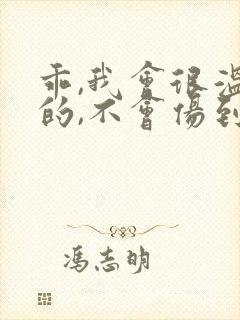 乖,我會很溫
的,不會傷到
馮志明